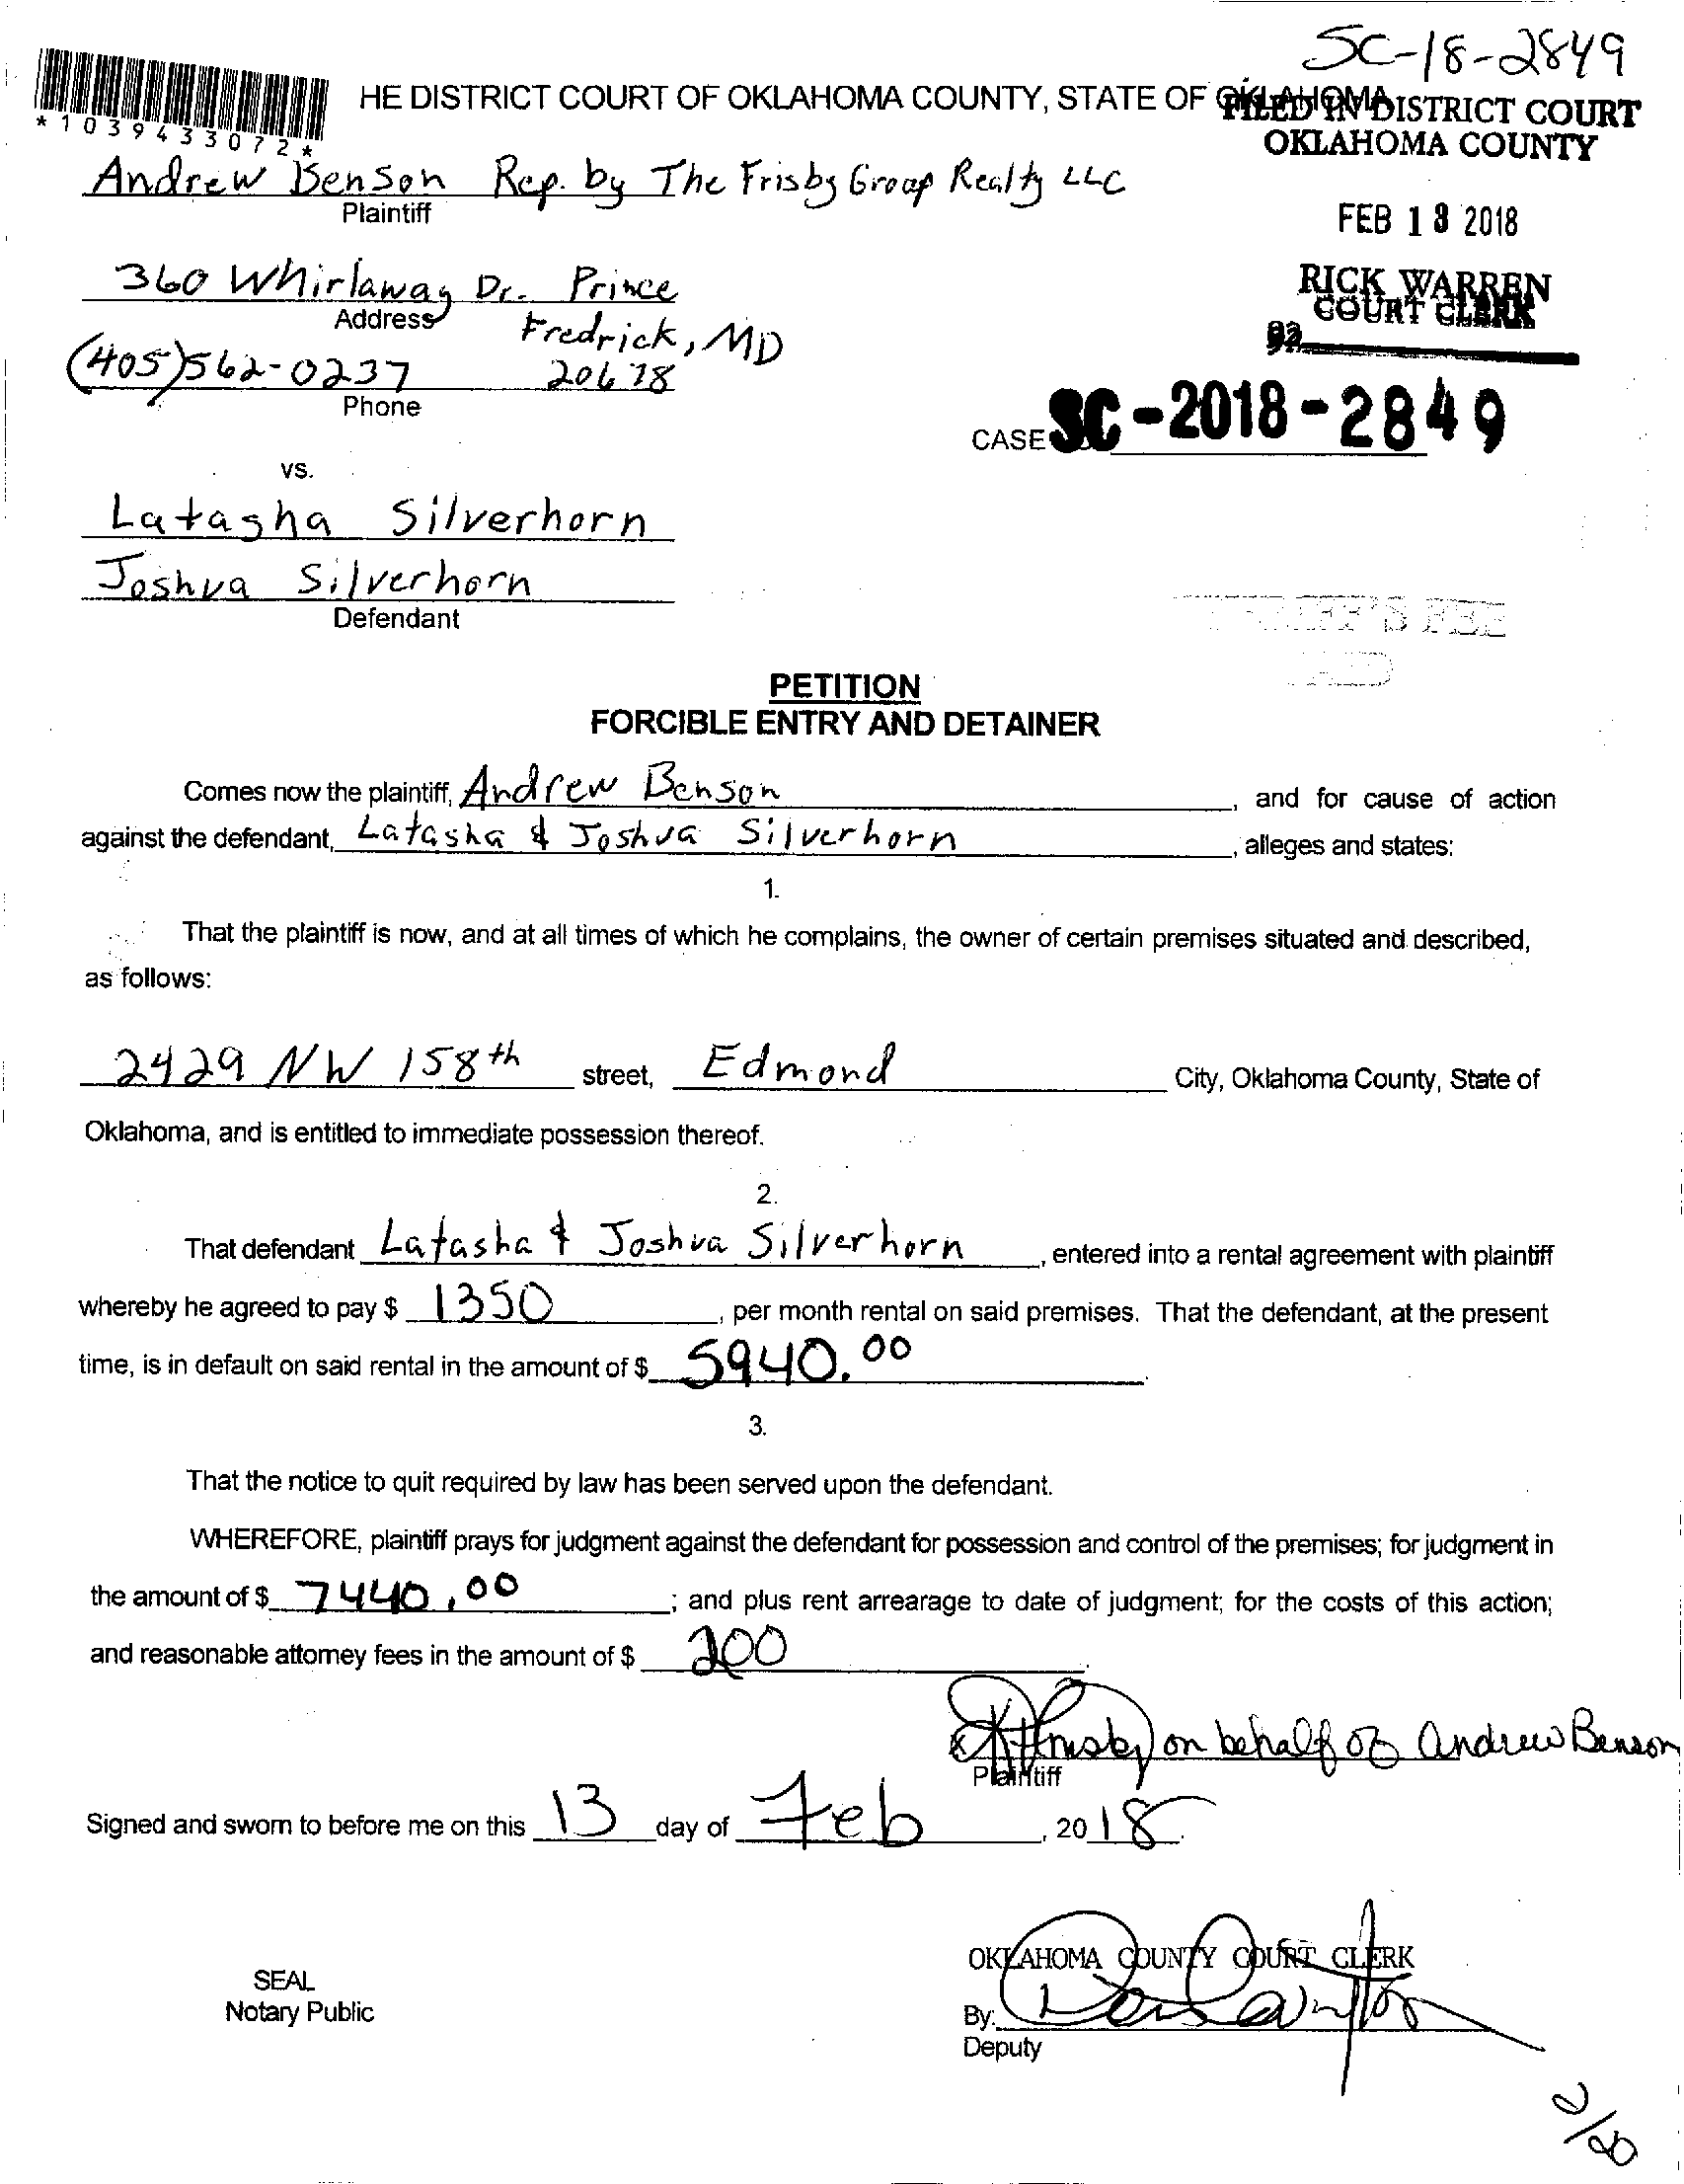 SC-18-2849
*1039433072*
HE DISTRICT COURT OF OKLAHOMA COUNTY, STATE OF OKLAHOMA
FILED IN DISTRICT COURT
OKLAHOMA COUNTY
Andrew Benson Rep. by The Frisby Group Realty LLC
Plaintiff
FEB 13 2018
360 Whirlaway Dr. Prince
Address
Fredrick, MD
20678
RICK WARREN
COURT CLERK
(405)562-0237
Phone
CASE SC-2018-2849
vs.
Latasha Silverhorn
Joshua Silverhorn
Defendant
FEE
PETITION
FORCIBLE ENTRY AND DETAINER
Comes now the plaintiff, Andrew Benson, and for cause of action
against the defendant, Latasha & Joshua Silverhorn, alleges and states:
1.
That the plaintiff is now, and at all times of which he complains, the owner of certain premises situated and described,
as follows:
2429 NW 158th street, Edmond City, Oklahoma County, State of
Oklahoma, and is entitled to immediate possession thereof.
2.
That defendant Latasha & Joshua Silverhorn, entered into a rental agreement with plaintiff
whereby he agreed to pay $ 1350, per month rental on said premises. That the defendant, at the present
time, is in default on said rental in the amount of $ 5940.00.
3.
That the notice to quit required by law has been served upon the defendant.
WHEREFORE, plaintiff prays for judgment against the defendant for possession and control of the premises; for judgment in
the amount of $ 7440.00; and plus rent arrearage to date of judgment; for the costs of this action;
and reasonable attorney fees in the amount of $ 200.
on behalf of Andrew Benson
Plaintiff
Signed and sworn to before me on this 13 day of Feb, 2018.
OKLAHOMA COUNTY COURT CLERK
SEAL
Notary Public
By:
Deputy
2/20